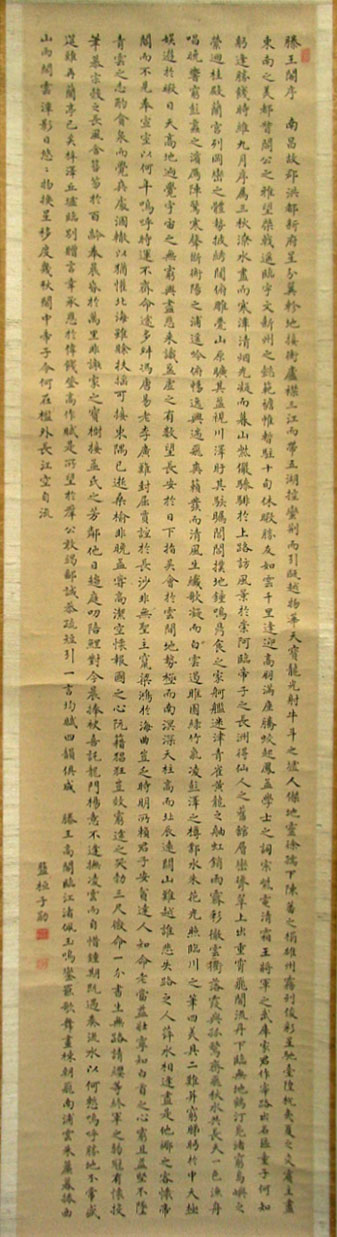 滕王閣序　南昌故郡洪都新府星分翼軫地接衡廬襟三江而帶五湖控蠻荊而引甌越物華天寶龍光射牛斗之墟人傑地靈徐孺下陳蕃之榻雄州霧列俊彩星馳臺隍枕夷夏之交賓主盡
東南之美都督閻公之雅望棨戟遙臨宇文新州之懿範襜帷暫駐十旬休暇勝友如雲千里逢迎高朋滿座騰蛟起鳳孟學士之詞宗紫電清霜王將軍之武庫家君作宰路出名區童子何知
躬逢勝餞時維九月序屬三秋潦水盡而寒潭清煙光凝而暮山紫儼驂騑於上路訪風景於崇阿臨帝子之長洲得仙人之舊館層巒聳翠上出重霄飛閣流丹下臨無地鶴汀鳧渚窮島嶼之
縈迴桂殿蘭宮列岡巒之體勢披繡闥俯雕甍山原曠其盈視川澤盱其駭矚閭閻撲地鐘鳴鼎食之家舸艦迷津青雀黃龍之舳虹銷雨霽彩徹雲衢落霞與孤鶩齊飛秋水共長天一色漁舟
唱晚響窮彭蠡之濱雁陣驚寒聲斷衡陽之浦遙吟俯暢逸興遄飛爽籟發而清風生纖歌凝而白雲遏睢園綠竹氣凌彭澤之樽鄴水朱花光照臨川之筆四美具二難并窮睇眄於中天極
娛遊於暇日天高地迥覺宇宙之無窮興盡悲來識盈虛之有數望長安於日下指吳會於雲間地勢極而南溟深天柱高而北辰遠關山難越誰悲失路之人萍水相逢盡是他鄉之客懷帝
閽而不見奉宣室以何年嗚呼時運不齊命途多舛馮唐易老李廣難封屈賈誼於長沙非無聖主竄梁鴻於海曲豈乏時明所賴君子安貧達人知命老當益壯寧知白首之心窮且益堅不墜
青雲之志酌貪泉而覺爽處涸轍以猶懽北海雖賒扶搖可接東隅已逝桑榆非晚孟嘗高潔空懷報國之心阮籍猖狂豈效窮途之哭勃三尺微命一介書生無路請纓等終軍之弱冠有懷投
筆慕宗慤之長風舍簪笏於百齡奉晨昏於萬里非謝家之寶樹接孟氏之芳鄰他日趨庭叨陪鯉對今晨捧袂喜託龍門楊意不逢撫凌雲而自惜鍾期既遇奏流水以何慙嗚呼勝地不常盛
筵難再蘭亭已矣梓澤丘墟臨別贈言幸承恩於偉餞登高作賦是所望於群公敢竭鄙誠恭疏短引一言均賦四韻俱成　滕王高閣臨江渚佩玉鳴鑾罷歌舞畫棟朝飛南浦雲朱簾暮捲西
山雨閒雲潭影日悠々物換星移度幾秋閣中帝子今何在檻外長江空自流